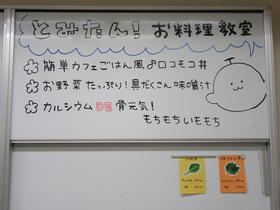 とみたん！お料理教室
簡単カフェごはん風♂ロコモコ丼
お野菜たっぷり！具だくさん味噌汁
カルシウムDE骨元気！
もちもちいももち